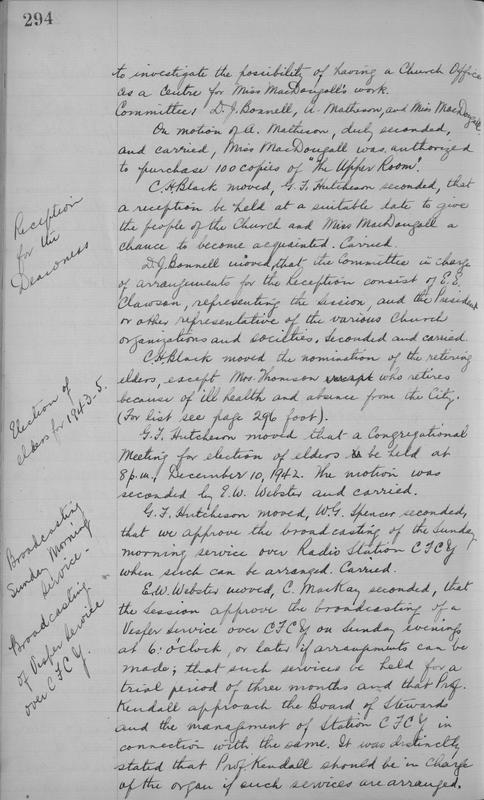 294
to investigate the possibility of having a Church Office
as a centre for Miss MacDougall's work.
Committee, D.J. Bonnell, A. Matheson, and Miss MacDougall.
On motion of A. Matheson, duly seconded,
and carried, Miss MacDougall was authorized
to purchase 100 copies of "The Upper Room".
Reception
for the
Deaconess
C.H. Black moved, G.F. Hutcheson seconded, that
a reception be held at a suitable date to give
the people of the Church and Miss MacDougall a
chance to become acquainted. Carried.
D.J. Bonnell moved, that the Committee in charge
of arrangements for the Reception consist of E.E.
Clawson, representing the session, and the President
or other representative of the various Church
organizations and societies. Seconded and carried.
Election of
elders for 1943-5.
C.H. Black moved the nomination of the retiring
elders, except Mrs. Thomson except who retires
because of ill health and absence from the City.
(For list see page 296 foot).
G.F. Hutcheson moved that a Congregational
Meeting for election of elders be held at
8 p.m., December 10, 1942. The motion was
seconded by E.W. Webster and carried.
Broadcasting
Sunday Morning
Service.
G.F. Hutcheson moved, W.G. Spencer seconded,
that we approve the broadcasting of the Sunday
morning service over Radio Station CFCY
when such can be arranged. Carried.
Broadcasting
of Vesper Service
over CFCY.
E.W. Webster moved, C. MacKay seconded, that
the session approve the broadcasting of a
Vesper Service over CFCY on Sunday evenings
at 6:o'clock, or later if arrangements can be
made; that such services be held for a
trial period of three months and that Prof.
Kendall approach the Board of Stewards
and the management of Station CFCY in
connection with the same. It was distinctly
stated that Prof. Kendall should be in charge
of the organ if such services are arranged.